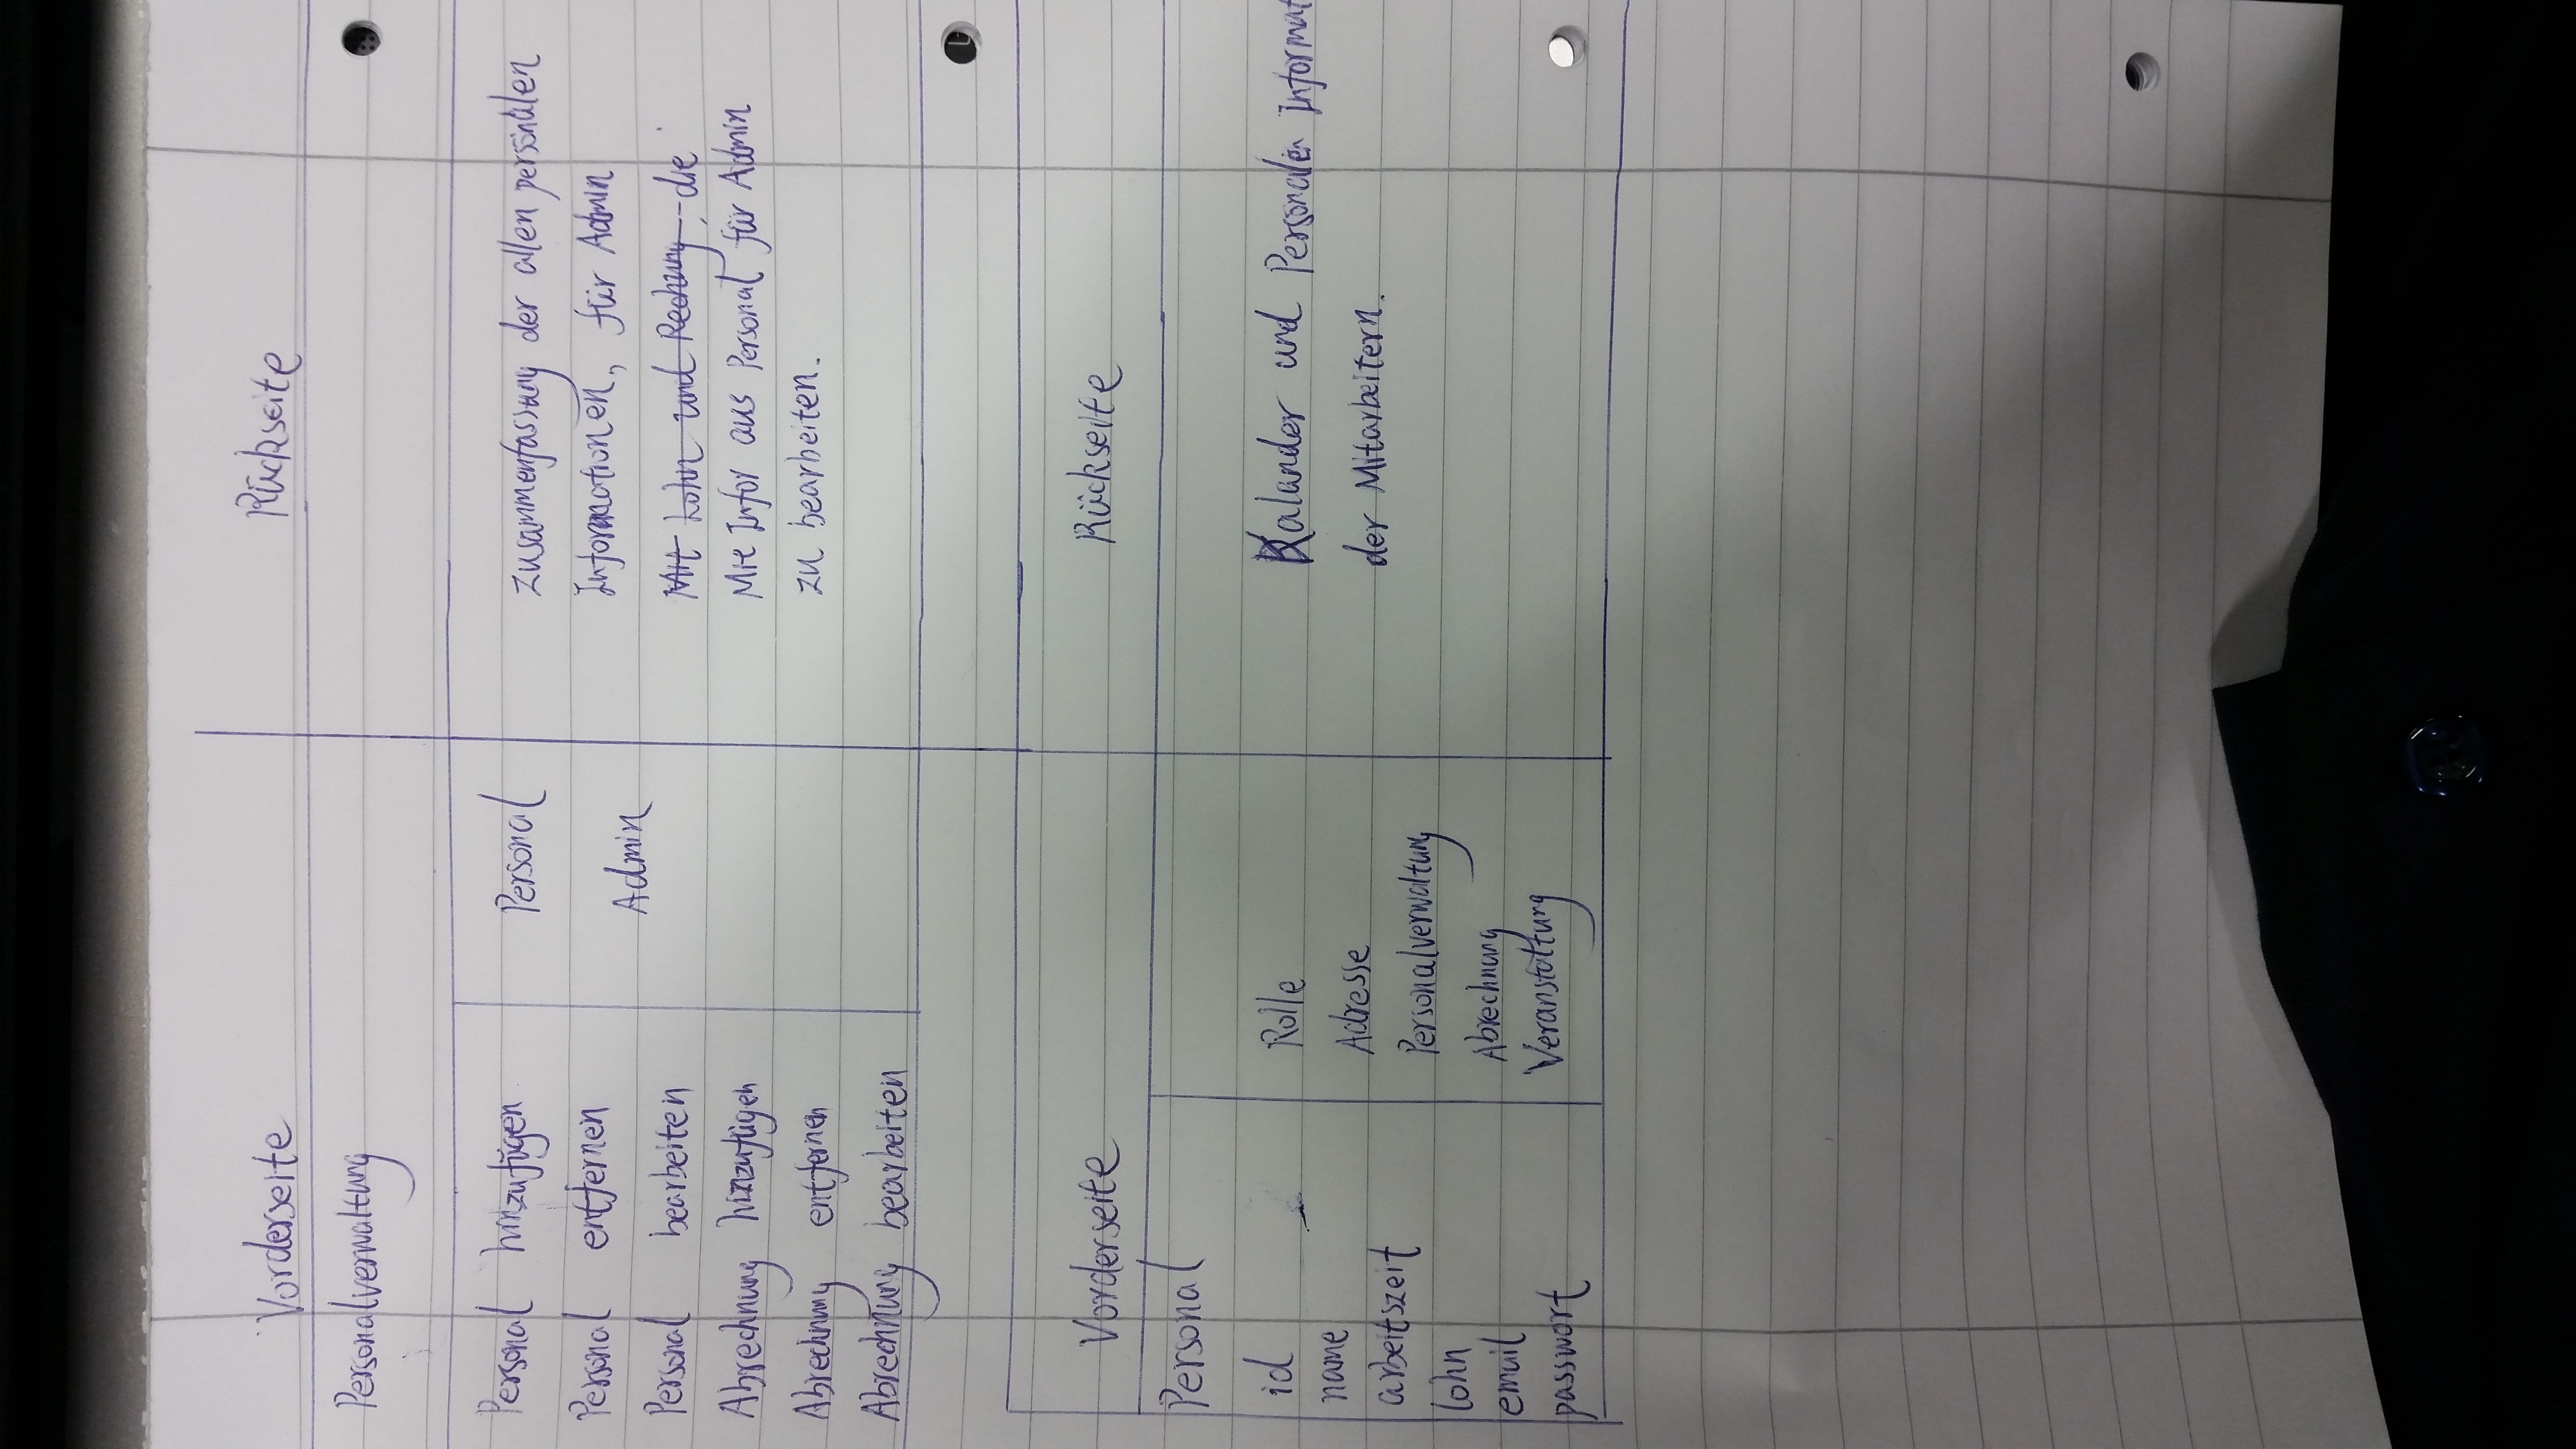 Vorderseite
Rückseite
Personalverwaltung
Personal hinzufügen
Personal entfernen
Personal bearbeiten
Abrechnung hinzufügen
Abrechnung entfernen
Abrechnung bearbeiten
Personal
Admin
Zusammenfassung der allen personalen
Informationen, für Admin
Mit Lohn und Rechnung, die
Mit Infor aus Personal für Admin
zu bearbeiten.
Vorderseite
Rückseite
Personal
id
name
arbeitszeit
lohn
email
passwort
Rolle
Adresse
Personalverwaltung
Abrechnung
Veranstaltung
Kalander und Personalen Informat
der Mitarbeitern.